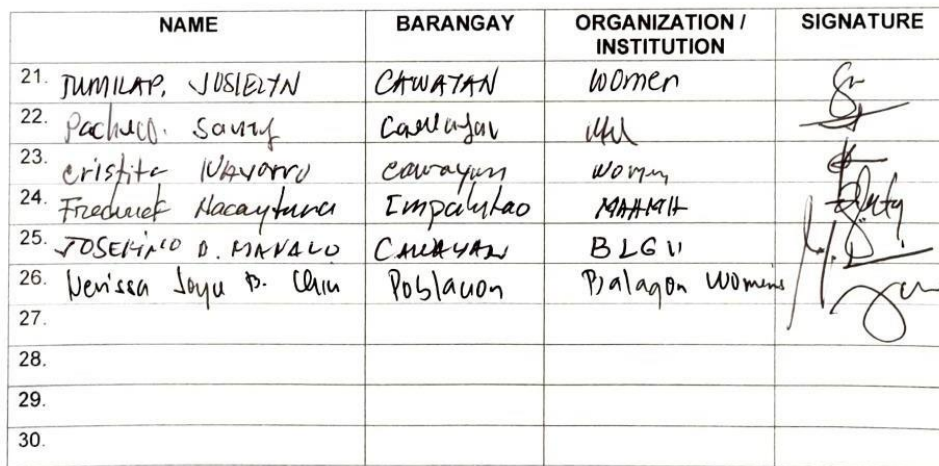 NAME BARANGAY ORGANIZATION / INSTITUTION SIGNATURE
21. JUMILAP, JOSIELYN CAWAYAN women
22. Pacheco, Cawayan
23. Cristita Navarro cawayan women
24. Impalutao
25. JOSEFINO D. MANALO CAWAYAN BLGU
26. Nerissa Joyce B. Poblacion Balagon Womens
27.
28.
29.
30.